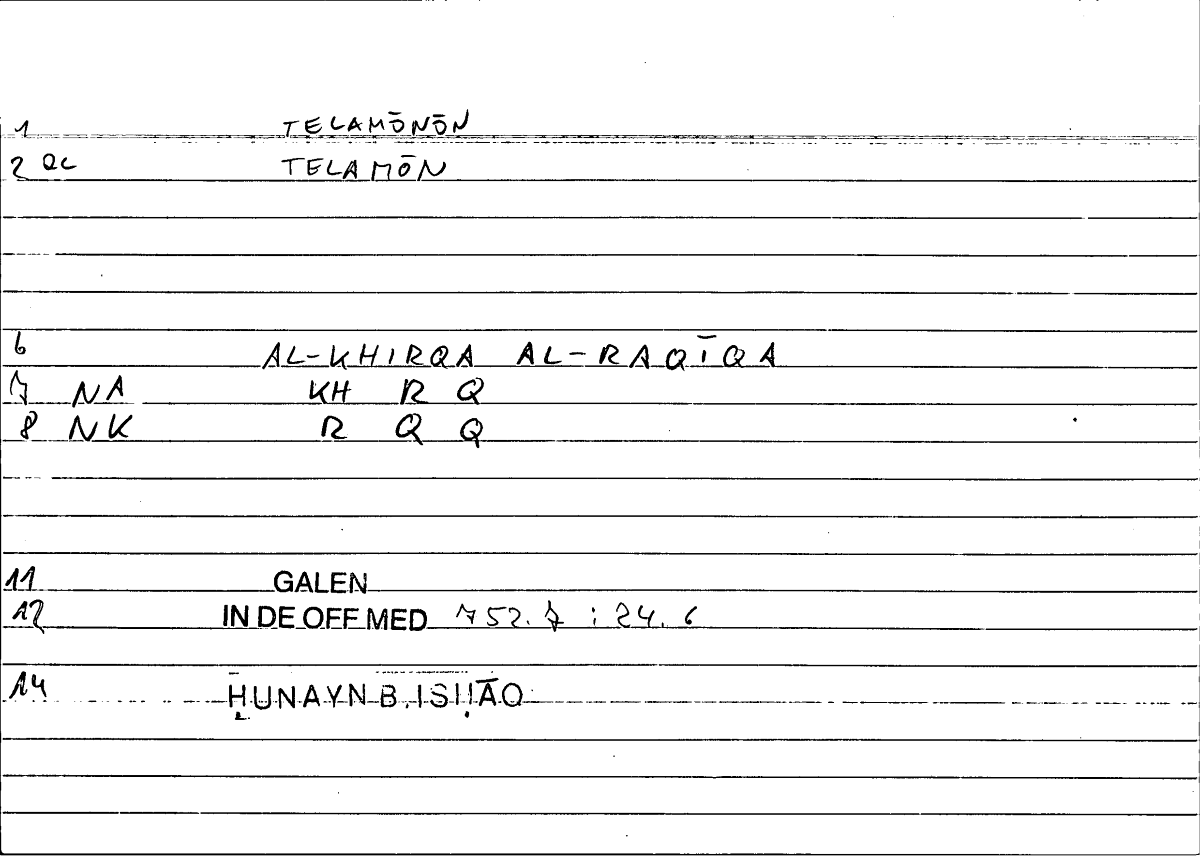 1 TELAMŌNŌN
2 QC TELAMŌN
6 AL-KHIRQA AL-RAQĪQA
7 NA KH R Q
8 NK R Q Q
11 GALEN
12 IN DE OFF MED 752.7 : 24.6
14 ḤUNAYN B. ISḤĀQ